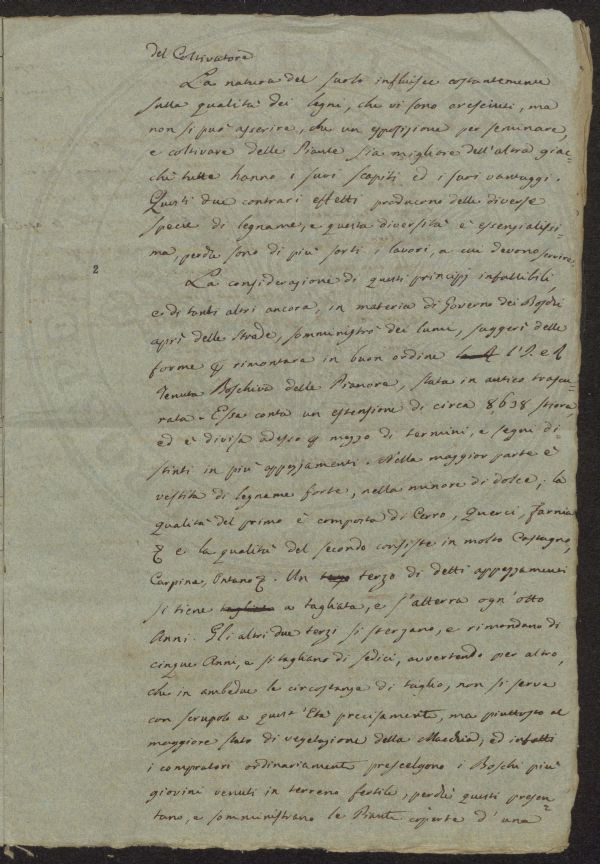 del Coltivatore
La natura del suolo influisce costantemente
sulla qualità dei legni, che vi sono cresciuti, ma
non si può asserire, che un esposizione per seminare,
e coltivare delle Piante sia migliore dell'altra giac=
chè tutte hanno i suoi scapiti ed i suoi vantaggi.
Questi due contrari effetti producono delle diverse
specie di legname, e questa diversità è essenzialissi=
ma, perchè sono di più sorti i lavori, a cui devono servire
2
La considerazione di questi principj infallibili,
e di tanti altri ancora, in materia di Governo dei Boschi
aprì delle Strade, somministrò dei lumi, suggerì delle
forme p rimontare in buon ordine l'I. e R
Tenuta Boschiva delle Pianora, stata in antico trascu=
rata. Essa conta un estensione di circa 8638 stiora,
ed è divisa adesso p mezzo di termini, e segni di=
stinti in più appezzamenti. Nella maggior parte è
vestita di legname forte, nella minore di dolce; la
qualità del primo è composta di Cerro, Querci, Farnia
e la qualità del secondo consiste in molto Castagno,
Carpine, Ontano. Un terzo di detti appezzamenti
si tiene tagliata a tagliata, e s'atterra ogn'otto
Anni. Gli altri due terzi si sterzano, e rimondano di
cinque Anni, e si tagliano di sedici, avvertendo per altro,
che in ambedue le circostanze di taglio, non si serve
con scrupolo a quest'Età precisamente, ma piuttosto al
maggiore stato di vegetazione della Macchia, ed infatti
i compratori ordinariamente prescelgono i Boschi più
giovini venuti in terreno fertile, perchè questi presen=
tano, e somministrano le Piante coperte d'una